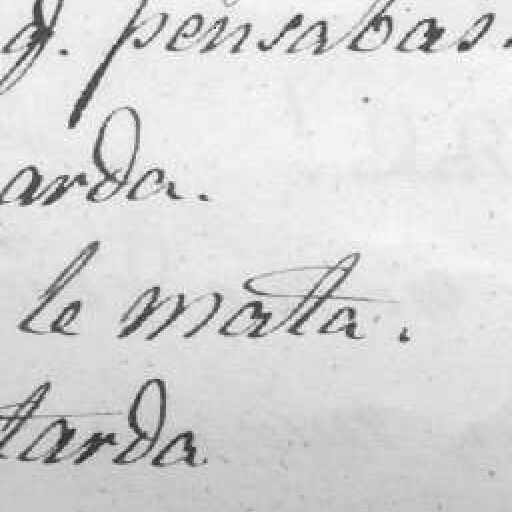 q. pensabas.
arda.
le mata.
tarda